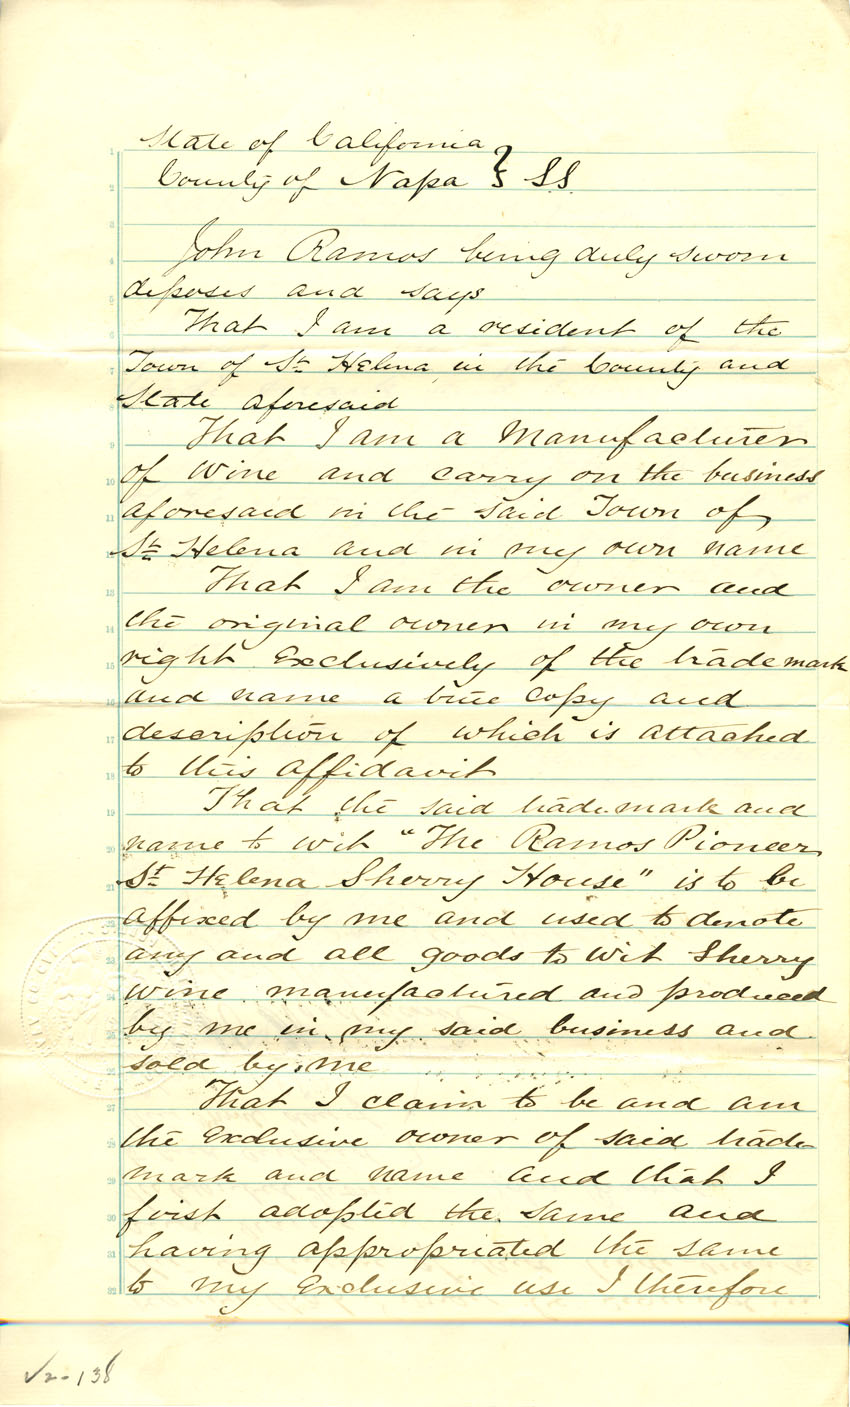 State of California }
County of Napa } SS
John Ramos being duly sworn
deposes and says
That I am a resident of the
Town of St Helena in the County and
State aforesaid
That I am a Manufacturer
of Wine and carry on the business
aforesaid in the said Town of
St Helena and in my own name
That I am the owner and
the original owner in my own
right Exclusively of the trademark
and name a true copy and
description of which is attached
to this affidavit
That the said trademark and
name to wit "The Ramos Pioneer
St Helena Sherry House" is to be
affixed by me and used to denote
any and all goods to wit Sherry
wine manufactured and produced
by me in my said business and
sold by me
That I claim to be and am
the Exclusive owner of said trade
mark and name and that I
first adopted the same and
having appropriated the same
to my Exclusive use I therefore